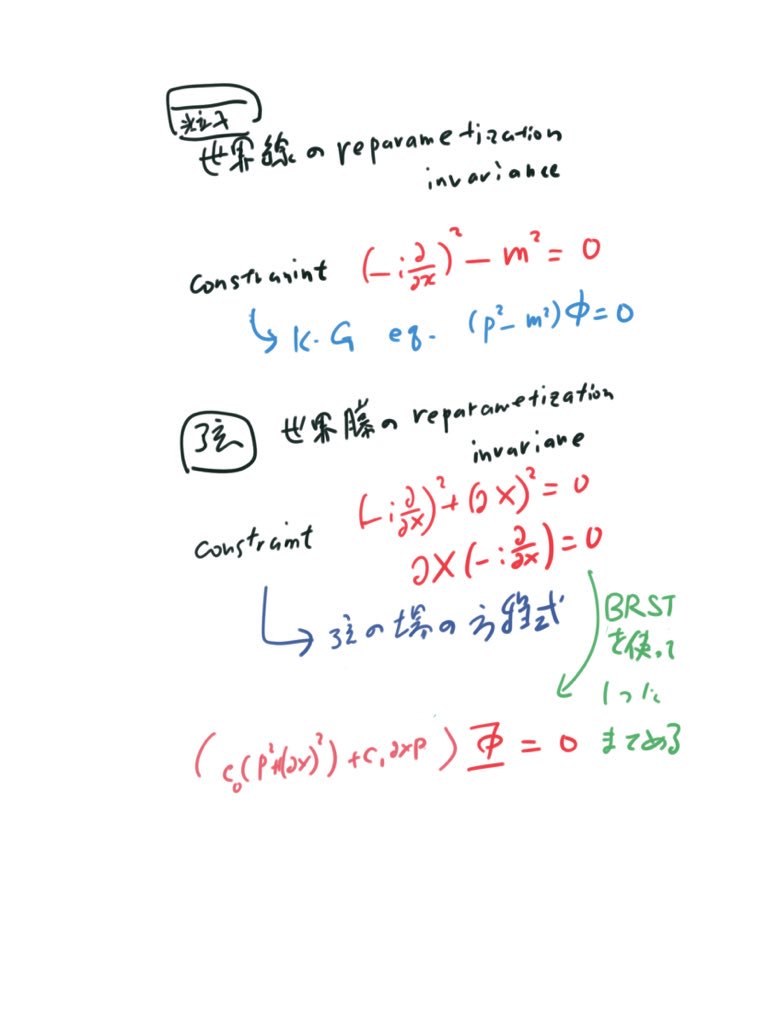 粒子
世界線の reparametization
invariance
constranint (-i∂/∂x)² - m² = 0
↳ K.G eq. (p² - m²)Φ = 0
弦 世界膜の reparametization
invariane
constraint (-i∂/∂x)² + (∂X)² = 0
∂X(-i∂/∂x) = 0
↳ 弦の場の方程式
BRST
を使って
1つに
まとめる
(c₀(p²+(∂x)²) + c₁∂xp) Φ = 0